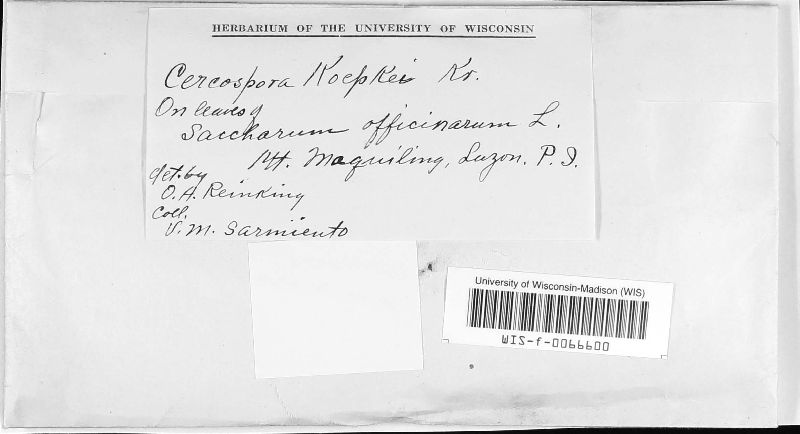 HERBARIUM OF THE UNIVERSITY OF WISCONSIN
Cercospora Koepkei Kr.
On leaves of
Saccharum officinarum L.
Mt. Maquiling, Luzon. P. I.
det. by
O. A. Reinking
Coll.
V. M. Sarmiento
University of Wisconsin-Madison (WIS)
WIS-f-0066600